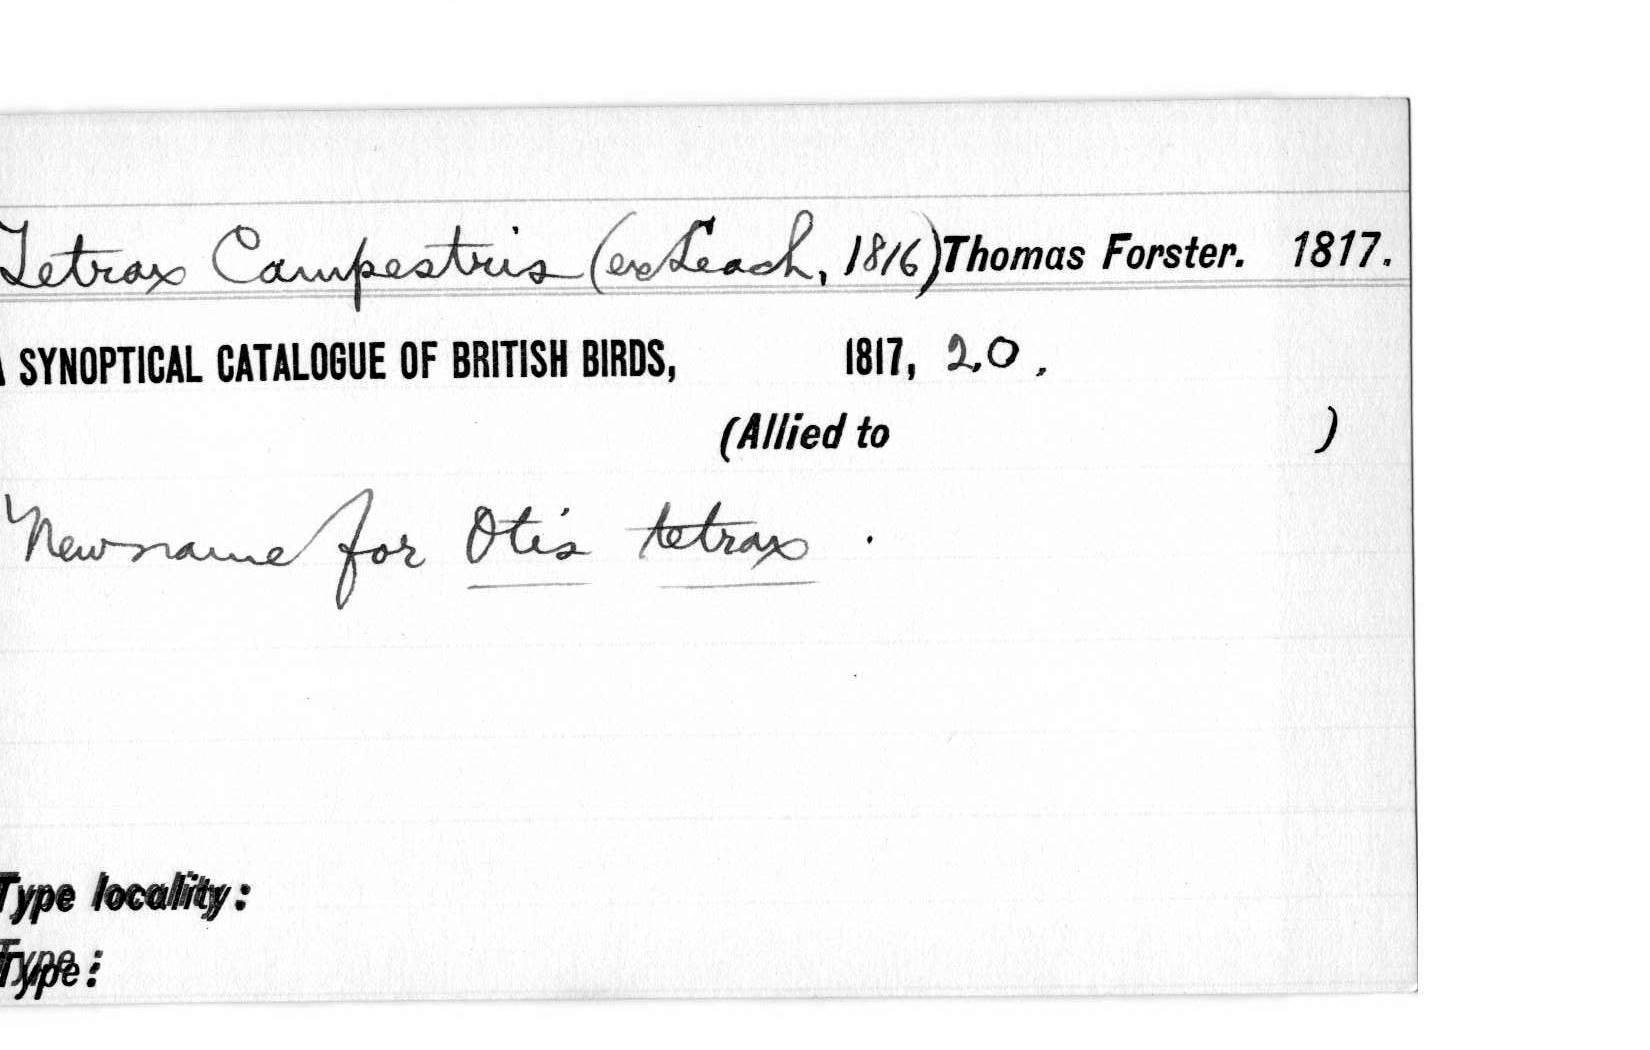 Tetrax Campestris (ex Leach, 1816) Thomas Forster. 1817.
A SYNOPTICAL CATALOGUE OF BRITISH BIRDS, 1817, 20.
(Allied to )
New name for Otis tetrax.
Type locality:
Type: